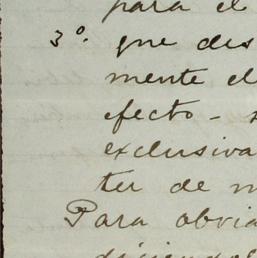 para el
3º. que des
mente el
efecto -
exclusiva
ter de m
Para obvia